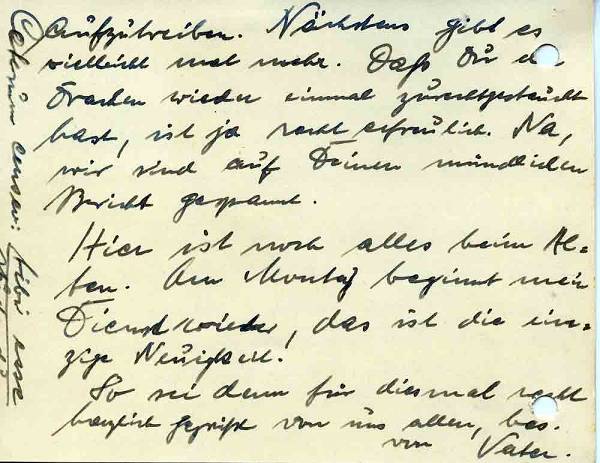 aufzutreiben. Nächstens gibt es
vielleicht mal mehr. Daß Du den
Drachen wieder einmal zurechtgestaucht
hast, ist ja recht erfreulich. Na,
wir sind auf Deinen mündlichen
Bericht gespannt.
Hier ist noch alles beim Al-
ten. Am Montag beginnt mein
Dienst wieder, das ist die ein-
zige Neuigkeit.
So sei denn für diesmal recht
herzlich gegrüßt von uns allen, bes.
von Vater.
Ceterum censeo: